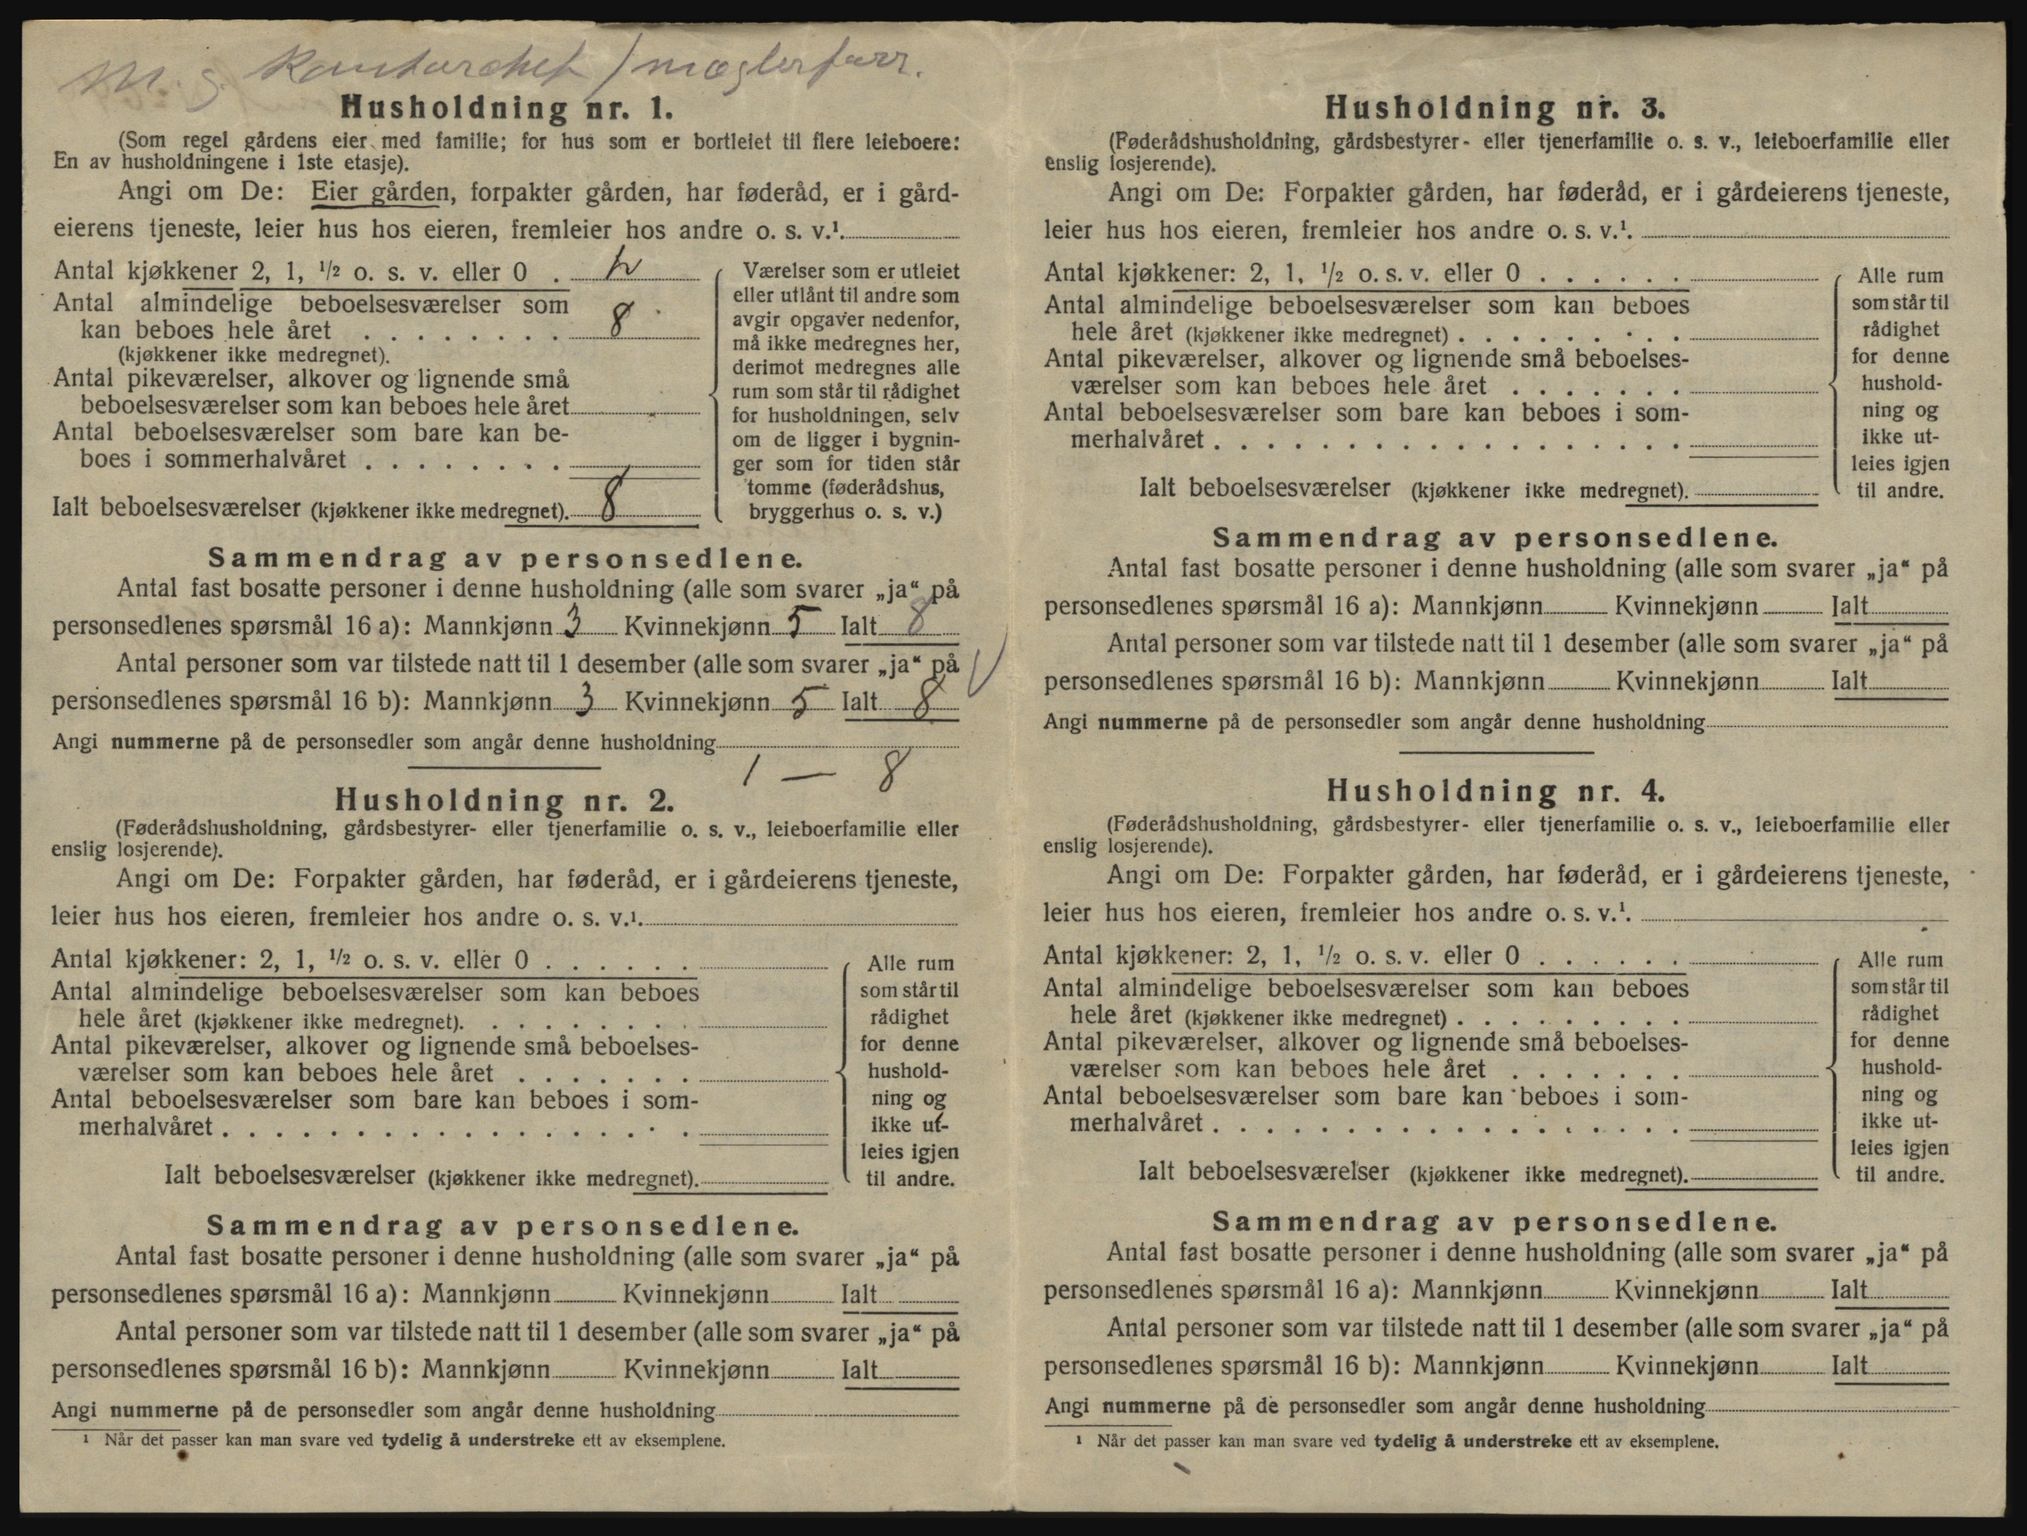 M. g. Kontorchef / mæglerforr.
Husholdning nr. 1.
(Som regel gårdens eier med familie; for hus som er bortleiet til flere leieboere:
En av husholdningene i 1ste etasje).
Angi om De: Eier gården, forpakter gården, har føderåd, er i gård-
eierens tjeneste, leier hus hos eieren, fremleier hos andre o. s. v.¹.
Antal kjøkkener 2, 1, 1/2 o. s. v. eller 0 .
Antal almindelige beboelsesværelser som
kan beboes hele året . . . . . . . . 8
(kjøkkener ikke medregnet).
Antal pikeværelser, alkover og lignende små
beboelsesværelser som kan beboes hele året
Antal beboelsesværelser som bare kan be-
boes i sommerhalvåret . . . . . . . .
Ialt beboelsesværelser (kjøkkener ikke medregnet). 8
Værelser som er utleiet
eller utlånt til andre som
avgir opgaver nedenfor,
må ikke medregnes her,
derimot medregnes alle
rum som står til rådighet
for husholdningen, selv
om de ligger i bygnin-
ger som for tiden står
tomme (føderådshus,
bryggerhus o. s. v.)
Sammendrag av personsedlene.
Antal fast bosatte personer i denne husholdning (alle som svarer „ja“ på
personsedlenes spørsmål 16 a): Mannkjønn 3 Kvinnekjønn 5 Ialt 8
Antal personer som var tilstede natt til 1 desember (alle som svarer „ja“ på
personsedlenes spørsmål 16 b): Mannkjønn 3 Kvinnekjønn 5 Ialt 8
Angi nummerne på de personsedler som angår denne husholdning
1 — 8
Husholdning nr. 2.
(Føderådshusholdning, gårdsbestyrer- eller tjenerfamilie o. s. v., leieboerfamilie eller
enslig losjerende).
Angi om De: Forpakter gården, har føderåd, er i gårdeierens tjeneste,
leier hus hos eieren, fremleier hos andre o. s. v.¹.
Antal kjøkkener: 2, 1, 1/2 o. s. v. eller 0 . . . . . .
Antal almindelige beboelsesværelser som kan beboes
hele året (kjøkkener ikke medregnet). . . . . . . . .
Antal pikeværelser, alkover og lignende små beboelses-
værelser som kan beboes hele året . . . . . . .
Antal beboelsesværelser som bare kan beboes i som-
merhalvåret . . . . . . . . . . . . . . . . . .
Ialt beboelsesværelser (kjøkkener ikke medregnet).
Alle rum
som står til
rådighet
for denne
hushold-
ning og
ikke ut-
leies igjen
til andre.
Sammendrag av personsedlene.
Antal fast bosatte personer i denne husholdning (alle som svarer „ja“ på
personsedlenes spørsmål 16 a): Mannkjønn Kvinnekjønn Ialt
Antal personer som var tilstede natt til 1 desember (alle som svarer „ja“ på
personsedlenes spørsmål 16 b): Mannkjønn Kvinnekjønn Ialt
Angi nummerne på de personsedler som angår denne husholdning
¹ Når det passer kan man svare ved tydelig å understreke ett av eksemplene.
Husholdning nr. 3.
(Føderådshusholdning, gårdsbestyrer- eller tjenerfamilie o. s. v., leieboerfamilie eller
enslig losjerende).
Angi om De: Forpakter gården, har føderåd, er i gårdeierens tjeneste,
leier hus hos eieren, fremleier hos andre o. s. v.¹.
Antal kjøkkener: 2, 1, 1/2 o. s. v. eller 0 . . . . . .
Antal almindelige beboelsesværelser som kan beboes
hele året (kjøkkener ikke medregnet) . . . . . . . . .
Antal pikeværelser, alkover og lignende små beboelses-
værelser som kan beboes hele året . . . . . . .
Antal beboelsesværelser som bare kan beboes i som-
merhalvåret . . . . . . . . . . . . . . . . . .
Ialt beboelsesværelser (kjøkkener ikke medregnet).
Alle rum
som står til
rådighet
for denne
hushold-
ning og
ikke ut-
leies igjen
til andre.
Sammendrag av personsedlene.
Antal fast bosatte personer i denne husholdning (alle som svarer „ja“ på
personsedlenes spørsmål 16 a): Mannkjønn Kvinnekjønn Ialt
Antal personer som var tilstede natt til 1 desember (alle som svarer „ja“ på
personsedlenes spørsmål 16 b): Mannkjønn Kvinnekjønn Ialt
Angi nummerne på de personsedler som angår denne husholdning
Husholdning nr. 4.
(Føderådshusholdning, gårdsbestyrer- eller tjenerfamilie o. s. v., leieboerfamilie eller
enslig losjerende).
Angi om De: Forpakter gården, har føderåd, er i gårdeierens tjeneste,
leier hus hos eieren, fremleier hos andre o. s. v.¹.
Antal kjøkkener: 2, 1, 1/2 o. s. v. eller 0 . . . . . .
Antal almindelige beboelsesværelser som kan beboes
hele året (kjøkkener ikke medregnet) . . . . . . . . .
Antal pikeværelser, alkover og lignende små beboelses-
værelser som kan beboes hele året . . . . . . .
Antal beboelsesværelser som bare kan beboes i som-
merhalvåret . . . . . . . . . . . . . . . . . .
Ialt beboelsesværelser (kjøkkener ikke medregnet).
Alle rum
som står til
rådighet
for denne
hushold-
ning og
ikke ut-
leies igjen
til andre.
Sammendrag av personsedlene.
Antal fast bosatte personer i denne husholdning (alle som svarer „ja“ på
personsedlenes spørsmål 16 a): Mannkjønn Kvinnekjønn Ialt
Antal personer som var tilstede natt til 1 desember (alle som svarer „ja“ på
personsedlenes spørsmål 16 b): Mannkjønn Kvinnekjønn Ialt
Angi nummerne på de personsedler som angår denne husholdning
¹ Når det passer kan man svare ved tydelig å understreke ett av eksemplene.